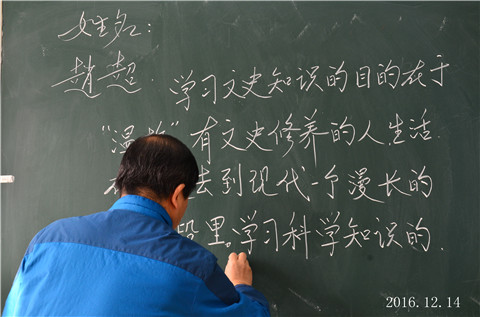 姓名:
赵超.
学习文史知识的目的在于
“漫
”有文史修养的人,生活
去到现代一个漫长的
段里。学习科学知识的.
2016.12.14